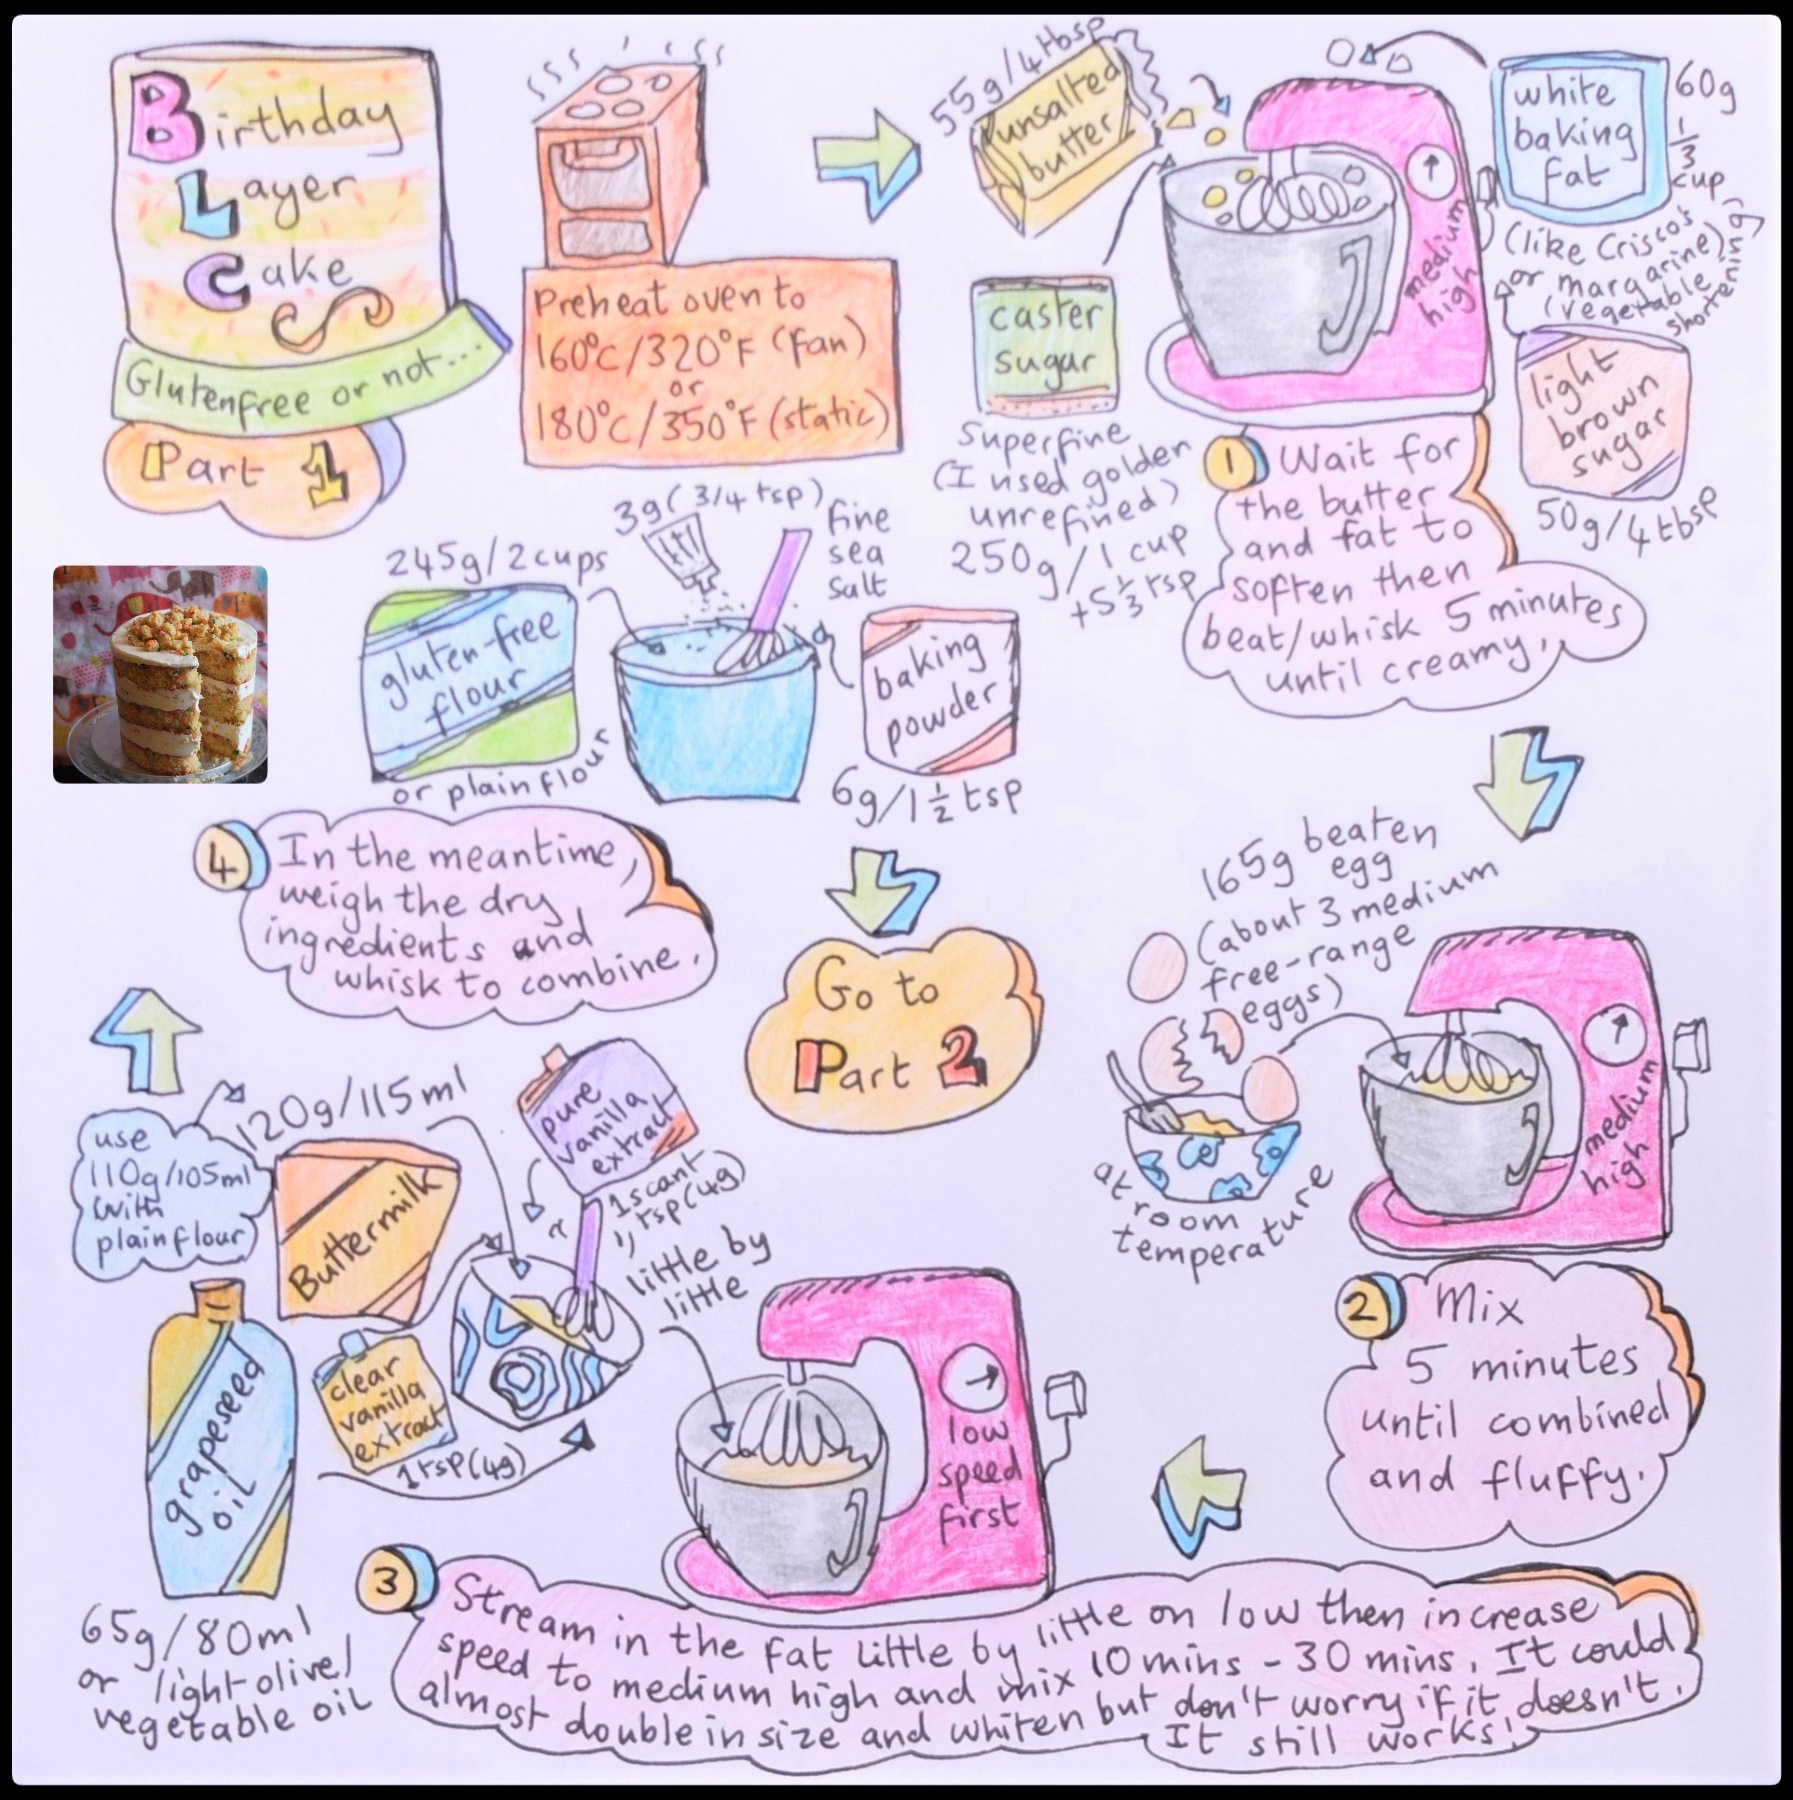 Birthday
Layer
Cake
Glutenfree or not...
Part 1
Preheat oven to
160°C/320°F (fan)
or
180°C/350°F (static)
55g/4tbsp
unsalted
butter
white
baking
fat
60g
1/3
cup
(like Crisco's
or margarine)
(vegetable
shortening)
medium
high
caster
sugar
Superfine
(I used golden
unrefined)
250g/1 cup
+5 1/3 tsp
light
brown
sugar
50g/4tbsp
1 Wait for
the butter
and fat to
soften then
beat/whisk 5 minutes
until creamy.
165g beaten
egg
(about 3 medium
free-range
eggs)
at room
temperature
medium
high
2 Mix
5 minutes
until combined
and fluffy.
120g/115ml
use
110g/105ml
with
plain flour
Buttermilk
pure
vanilla
extract
1 scant
tsp (4g)
clear
vanilla
extract
1 tsp (4g)
grapeseed
oil
65g/80ml
or light olive/
vegetable oil
little by
little
low
speed
first
3 Stream in the fat little by little on low then increase
speed to medium high and mix 10 mins - 30 mins. It could
almost double in size and whiten but don't worry if it doesn't.
It still works!
245g/2cups
gluten-free
flour
or plain flour
3g (3/4 tsp)
fine
sea
salt
baking
powder
6g/1 1/2 tsp
4 In the meantime,
weigh the dry
ingredients and
whisk to combine.
Go to
Part 2